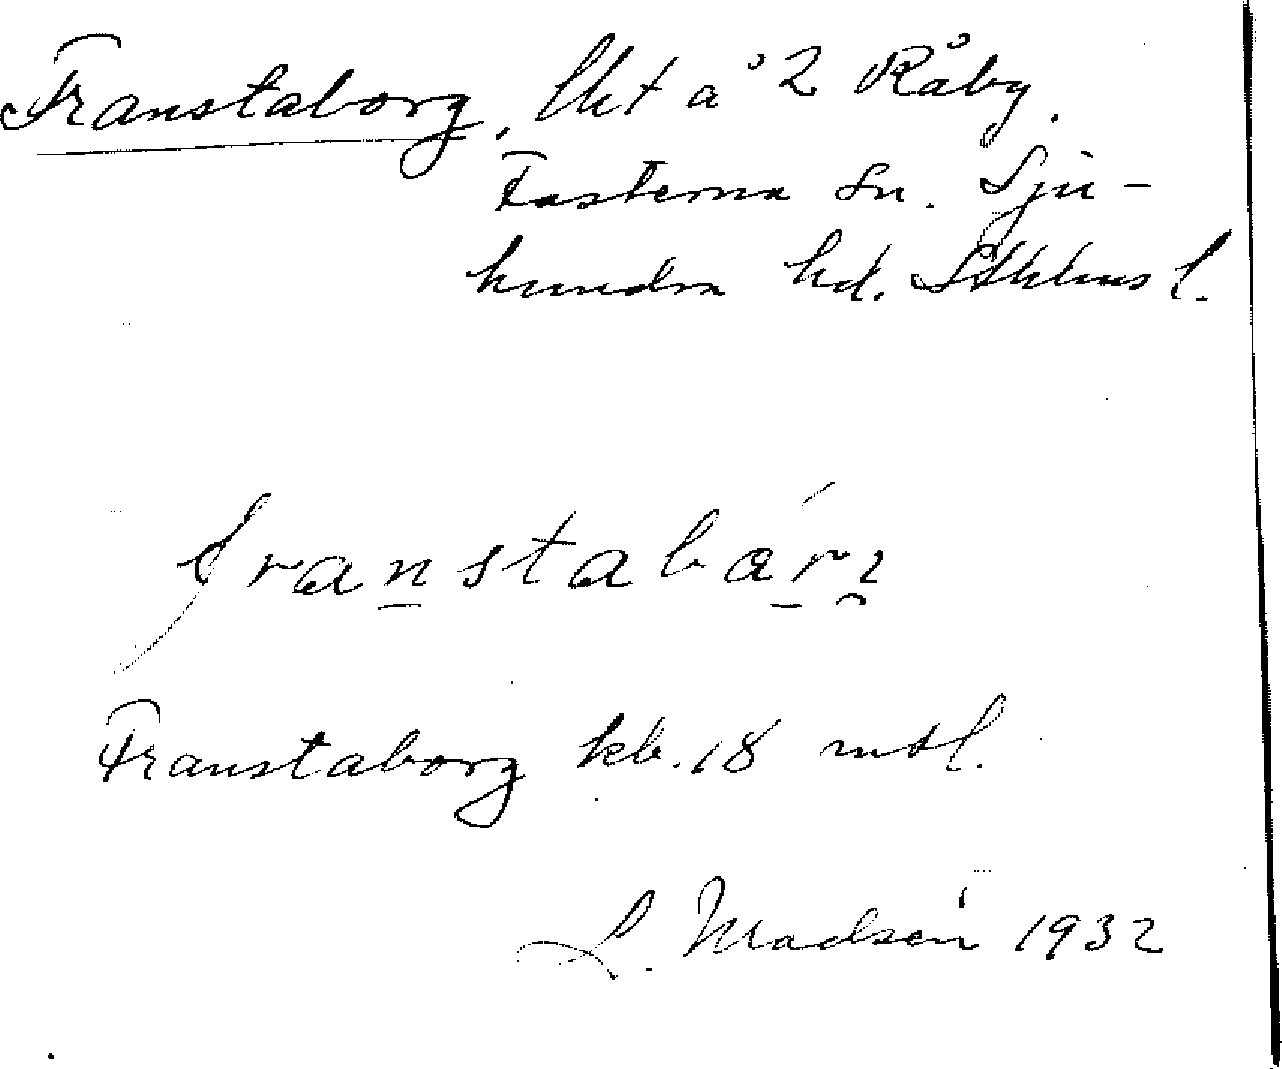 Franstaborg, lht å 2 Råby.
Fasterna sn. Sju-
hundra hd. Sthlms l.
franstabár
Franstaborg kb. 18 mtl.
L. Madsén 1932